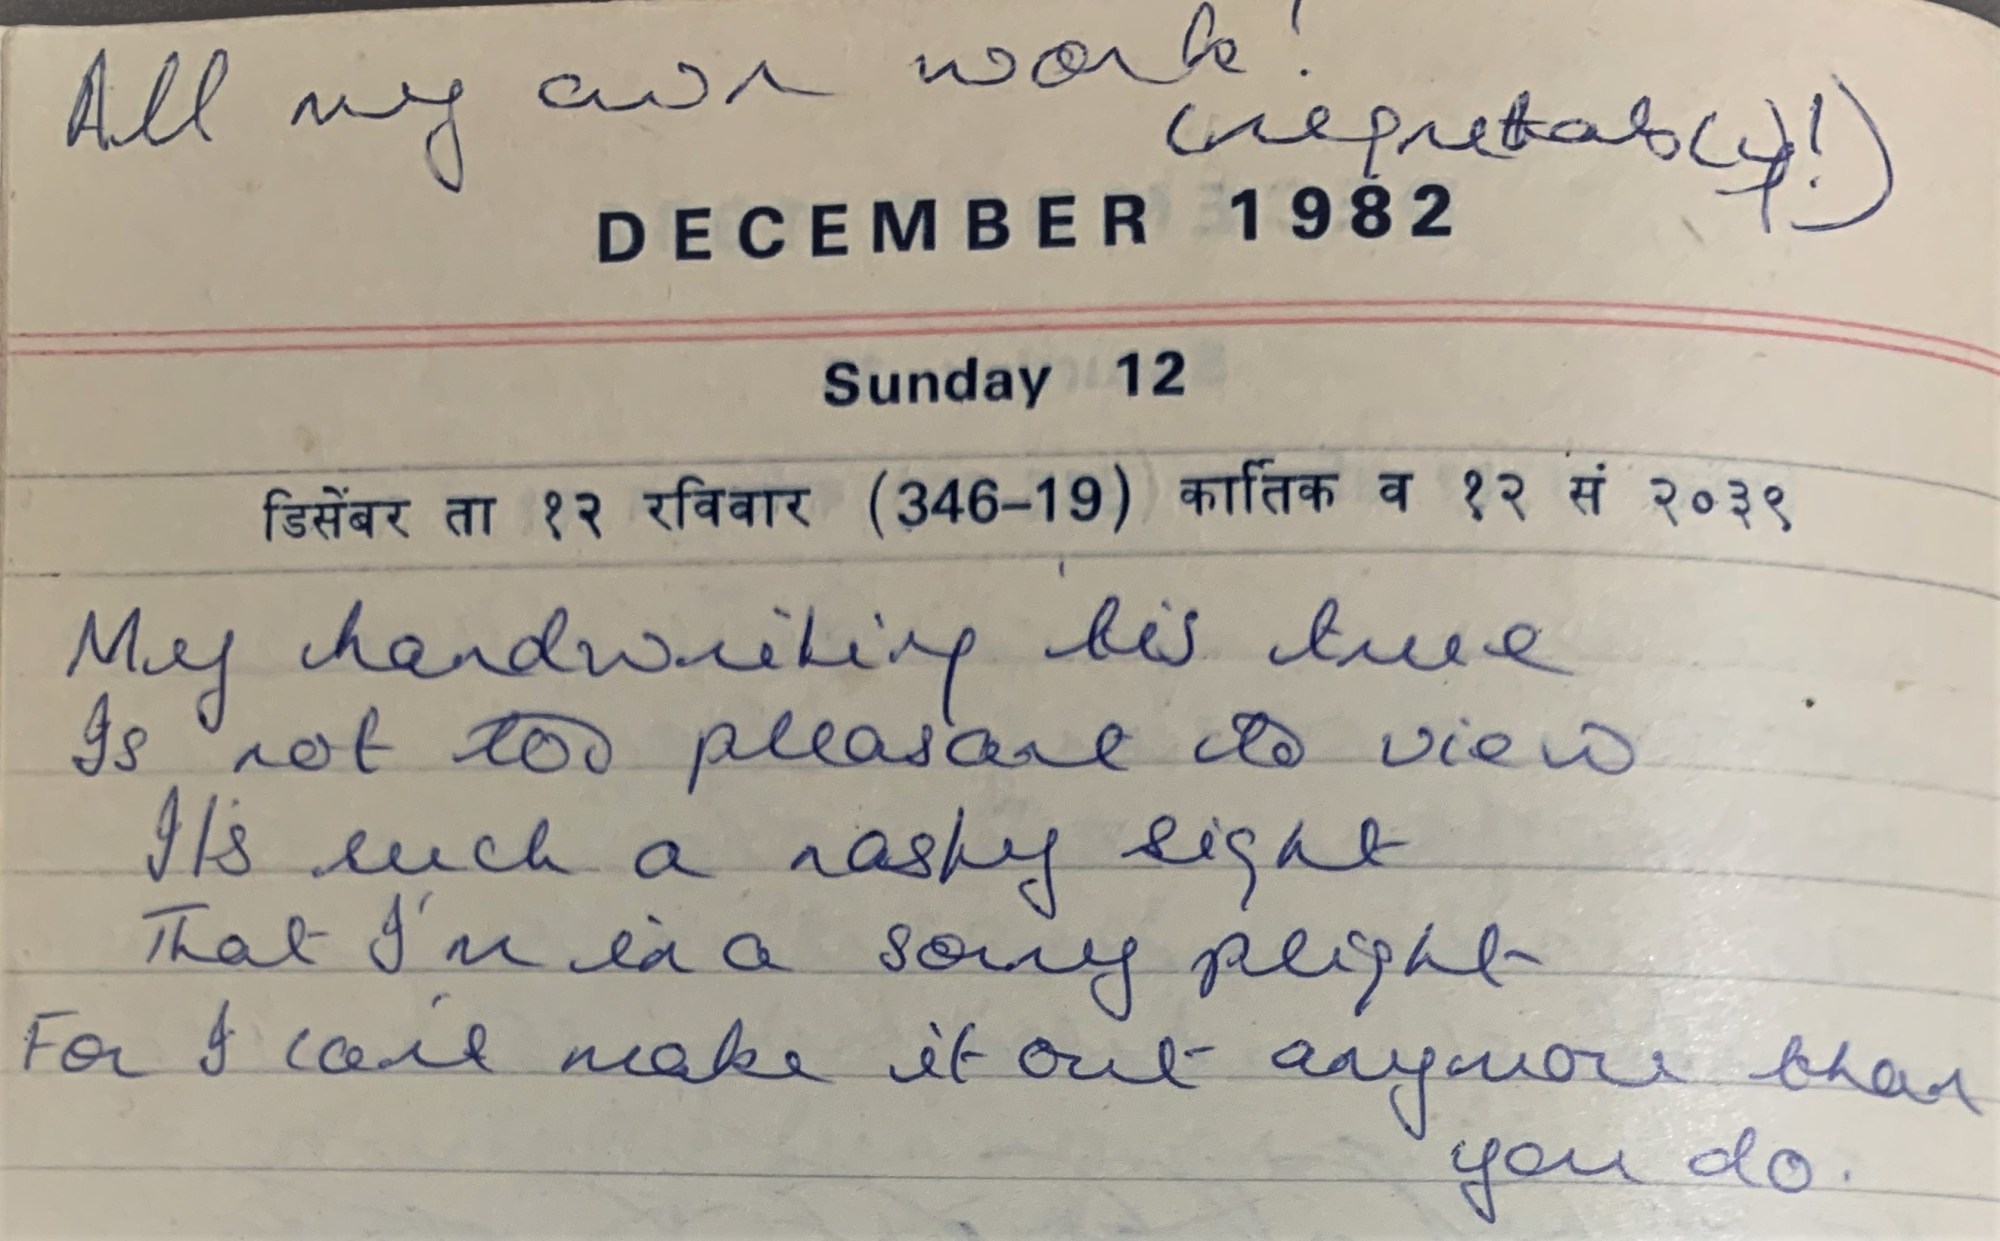 All my own work!
(regrettably!)
DECEMBER 1982
Sunday 12
डिसेंबर ता १२ रविवार (346-19) कार्तिक व १२ सं २०३९
My handwriting tis true
Is not too pleasant to view
It's such a nasty sight
That I'm in a sorry plight
For I can't make it out anymore than
you do.